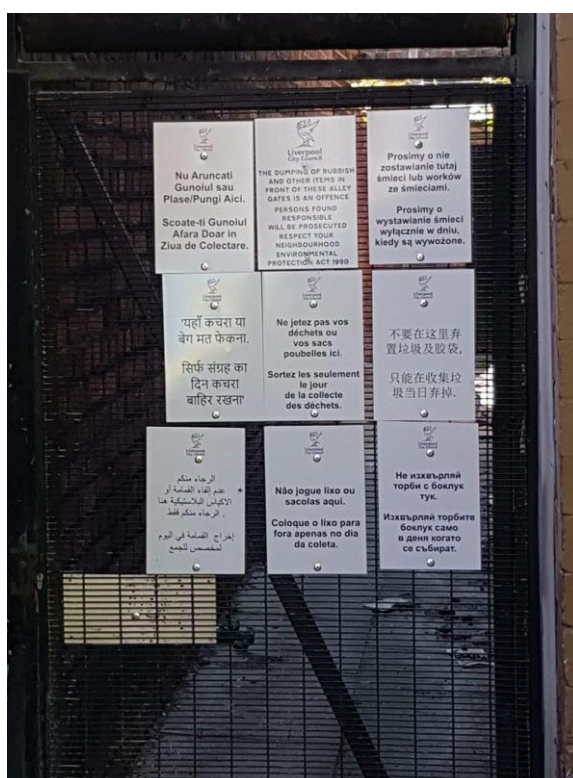 Liverpool
City Council
Nu Aruncati
Gunoiul sau
Plase/Pungi Aici.
Scoate-ti Gunoiul
Afara Doar in
Ziua de Colectare.
Liverpool
City Council
THE DUMPING OF RUBBISH
AND OTHER ITEMS IN
FRONT OF THESE ALLEY
GATES IS AN OFFENCE
PERSONS FOUND
RESPONSIBLE
WILL BE PROSECUTED
RESPECT YOUR
NEIGHBOURHOOD
ENVIRONMENTAL
PROTECTION ACT 1990
Liverpool
City Council
Prosimy o nie
zostawianie tutaj
śmieci lub worków
ze śmieciami.
Prosimy o
wystawianie śmieci
wyłącznie w dniu,
kiedy są wywożone.
Liverpool
City Council
'यहाँ कचरा या
बेग मत फेकना.
सिर्फ संग्रह का
दिन कचरा
बाहिर रखना'
Liverpool
City Council
Ne jetez pas vos
déchets ou
vos sacs
poubelles ici.
Sortez les seulement
le jour
de la collecte
des déchets.
Liverpool
City Council
不要在这里弃
置垃圾及胶袋,
只能在收集垃
圾当日弃掉.
Liverpool
City Council
الرجاء منكم
عدم إلقاء القمامة أو
الاكياس البلاستيكية هنا
. الرجاء منكم فقط
إخراج القمامة في اليوم
لمخصص للجمع
Liverpool
City Council
Não jogue lixo ou
sacolas aqui.
Coloque o lixo para
fora apenas no dia
da coleta.
Liverpool
City Council
Не изхвърляй
торби с боклук
тук.
Изхвърляй торбите
боклук само
в деня когато
се събират.